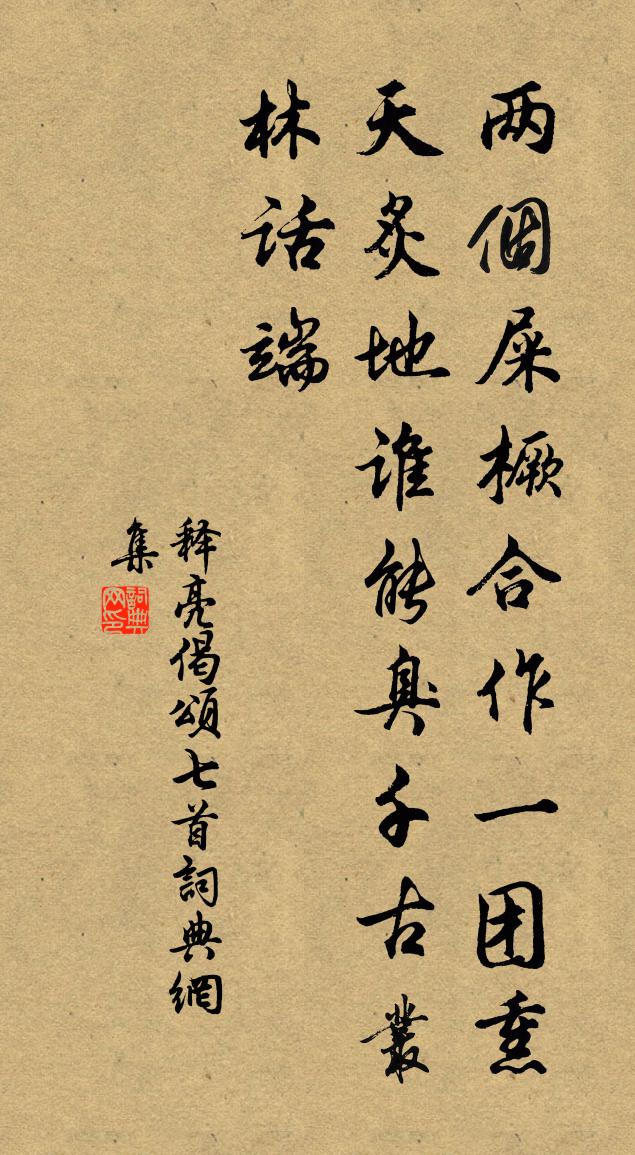 两個屎橛合作一团熏
天炙地谁能臭千古叢
林话端
释亮偈頌七首詞典網
集
詞典
网印